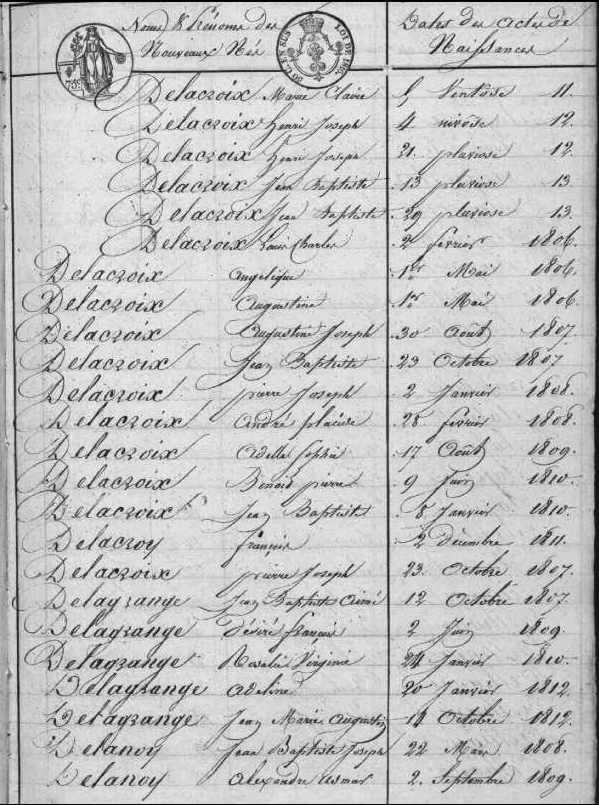 Noms & Prénoms des Nouveaux Nés
Dates des actes de Naissances
Delacroix Marie Claire 5 Ventôse 11.
Delacroix Henri Joseph 4 nivôse 12.
Delacroix Henri Joseph 21. pluviose 12.
Delacroix Jean Baptiste 13 pluviose 13
Delacroix Jean Baptiste 29 pluviose 13.
Delacroix Louis Charles 2 fevrier 1806.
Delacroix angelique 1er Mai 1806.
Delacroix augustine 1er Mai 1806
Delacroix augustine Joseph 30 août 1807.
Delacroix Jean Baptiste 23 Octobre 1807
Delacroix pierre Joseph 2 Janvier 1808.
Delacroix andré placide 28 fevrier 1808.
Delacroix adelle sophie 17 août 1809.
Delacroix Benoit pierre 9 Juin 1810.
Delacroix Jean Baptiste 8 Janvier 1810.
Delacroy françois 2 Décembre 1811.
Delacroix pierre Joseph 23. Octobre 1807.
Delagrange Jean Baptiste aimé 12 Octobre 1807.
Delagrange Désiré françois 2 Juin 1809.
Delagrange Rosalie Virginie 24 Janvier 1810.
Delagrange adeline 20 Janvier 1812
Delagrange Jean Marie augustin Octobre 1812.
Delanoy Jean Baptiste Joseph 22 Mars 1808.
Delanoy alexandre 2. Septembre 1809.